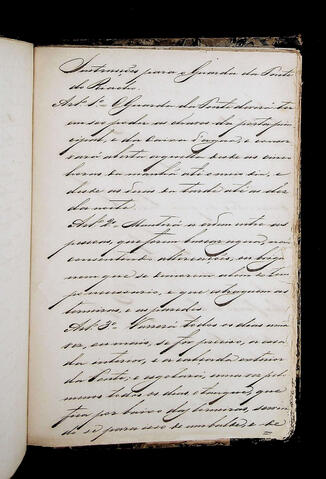 Instrucções para o Guarda da Fonte
do Riacho.
Art.º 1º O Guarda da Fonte deverá ter
em seo poder as chaves da porta prin-
cipal, e da caixa d'agua, e conser-
vará aberta aquella desde as cinco
horas da manhã até o meio dia, e
desde as duas da tarde até as dez
da noite.
Art.º 2º Manterá a ordem entre as
pessoas, que forem buscar agua, não
consentindo altercações, ou
nem que se demorem alem do tem-
po necessario, e que estraguem as
torneiras, e as paredes.
Art.º 3º Varrerá todos os dias uma
vez, ou mais, se for preciso, a casa
do interior, e a calçada exterior
da Fonte, e esgotará, uma vez pelo
menos todos os dias o tanque, que
fica por baixo das torneiras, servin-
do-se para isso de um balde, e de